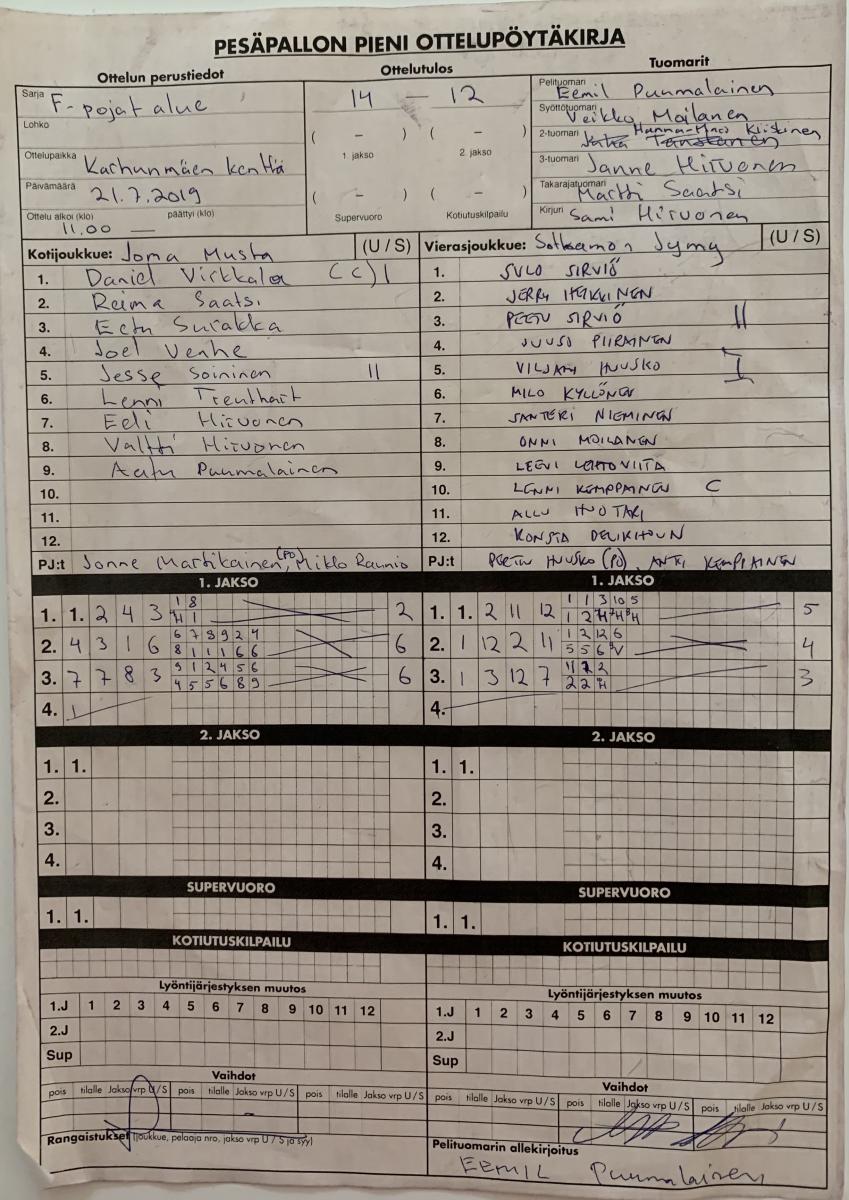 PESÄPALLON PIENI OTTELUPÖYTÄKIRJA
Ottelun perustiedot
Ottelutulos
Tuomarit
Sarja F-pojat alue
Lohko
Ottelupaikka Karhunmäen kenttä
Päivämäärä 21.7.2019
Ottelu alkoi (klo) päättyi (klo)
11.00 —
14 – 12
( – ) ( – )
1. jakso 2. jakso
( – ) ( – )
Supervuoro Kotiutuskilpailu
Pelituomari Eemil Puumalainen
Syöttötuomari Veikko Moilanen
2-tuomari Hanna-Mari Kiiskinen
3-tuomari Janne Hirvonen
Takarajatuomari Martti Saatsi
Kirjuri Sami Hirvonen
Kotijoukkue: Joma Musta (U / S)
1. Daniel Virkkala (C) I
2. Reima Saatsi
3. Eetu Surakka
4. Joel Venhe
5. Jesse Soininen II
6. Lenni
7. Eeli Hirvonen
8. Valtti Hirvonen
9. Aatu Puumalainen
10.
11.
12.
PJ:t Jonne Martikainen (PO), Mikko Raunio
Vierasjoukkue: Sotkamon Jymy (U / S)
1. SULO SIRVIÖ
2. JERRY HEIKKINEN
3. PEETU SIRVIÖ II
4. JUUSO PIIRAINEN
5. VILJAMI HUUSKO I
6. MILO KYLLÖNEN
7. SANTERI NIEMINEN
8. ONNI MOILANEN
9. LEEVI LEHTOVIITA
10. LENNI KEMPPAINEN C
11. ALLU HUOTARI
12. KONSTA
PJ:t PEETU HUUSKO (PO), ANTTI KEMPPAINEN
1. JAKSO
1. 1. 2 4 3 1 8 2
H 1
2. 4 3 1 6 6 7 8 9 2 4 6
8 1 1 1 6 6
3. 7 7 8 3 9 1 2 4 5 6 6
4 5 5 6 8 9
4. 1
1. JAKSO
1. 1. 2 11 12 1 1 3 10 5 5
1 2 H H H
2. 1 12 2 11 1 2 12 6 4
5 5 6 V
3. 1 3 12 7 2 3
2 2 H
4.
2. JAKSO
1. 1.
2.
3.
4.
2. JAKSO
1. 1.
2.
3.
4.
SUPERVUORO
1. 1.
SUPERVUORO
1. 1.
KOTIUTUSKILPAILU
KOTIUTUSKILPAILU
Lyöntijärjestyksen muutos
1.J 1 2 3 4 5 6 7 8 9 10 11 12
2.J
Sup
Lyöntijärjestyksen muutos
1.J 1 2 3 4 5 6 7 8 9 10 11 12
2.J
Sup
Vaihdot
pois tilalle Jakso vrp U / S pois tilalle Jakso vrp U / S pois tilalle Jakso vrp U / S
Vaihdot
pois tilalle Jakso vrp U / S pois tilalle Jakso vrp U / S pois tilalle Jakso vrp U / S
Rangaistukset (joukkue, pelaaja nro, jakso vrp U / S ja syy)
Pelituomarin allekirjoitus
EEMIL Puumalainen